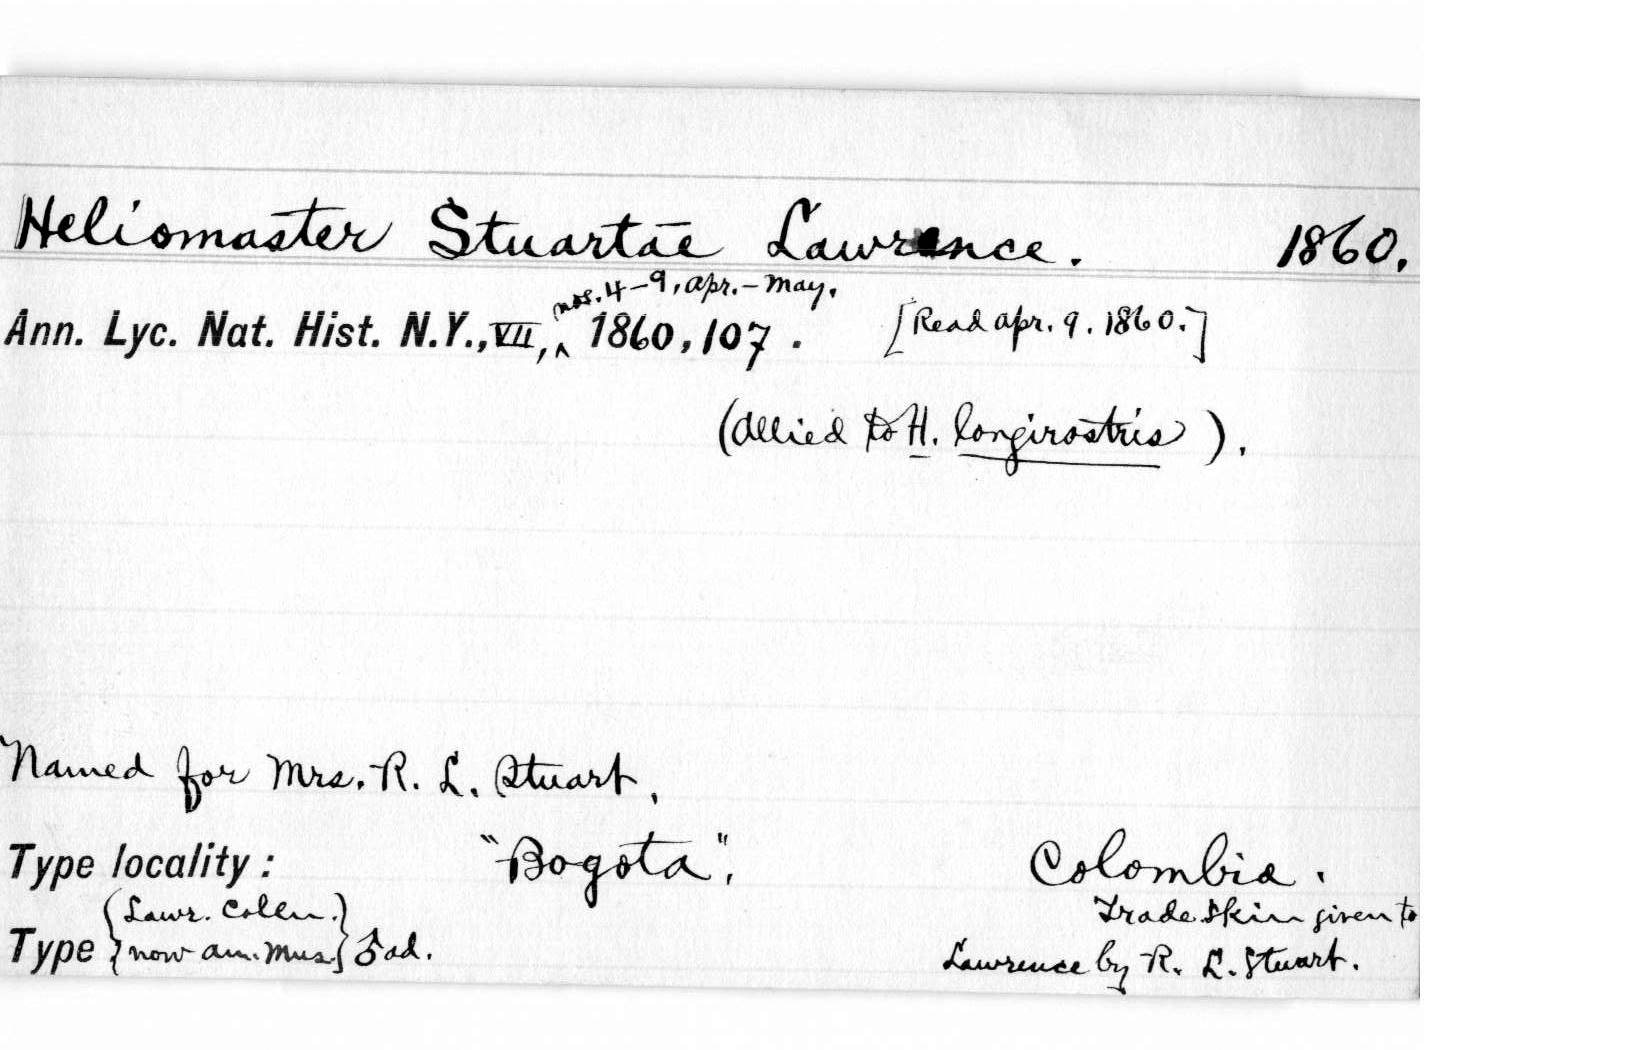 Heliomaster Stuartae Lawrence. 1860.
nos. 4-9, Apr.-May.
Ann. Lyc. Nat. Hist. N.Y., VII, ^ 1860, 107. [Read Apr. 9. 1860.]
(Allied to H. longirostris).
Named for Mrs. R. L. Stuart.
Type locality: "Bogota", Colombia.
(Lawr. Colln.) Trade skin given to
Type {now Am. Mus.} ♂ ad. Lawrence by R. L. Stuart.